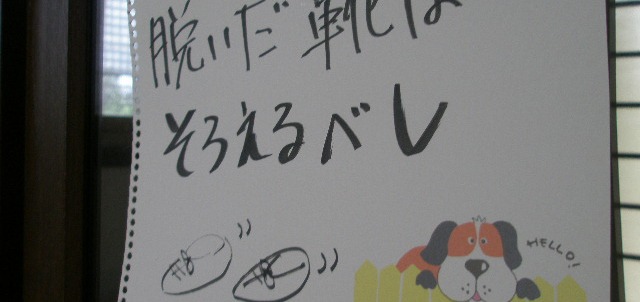 脱いだ靴は
そろえるベレ
HELLO!